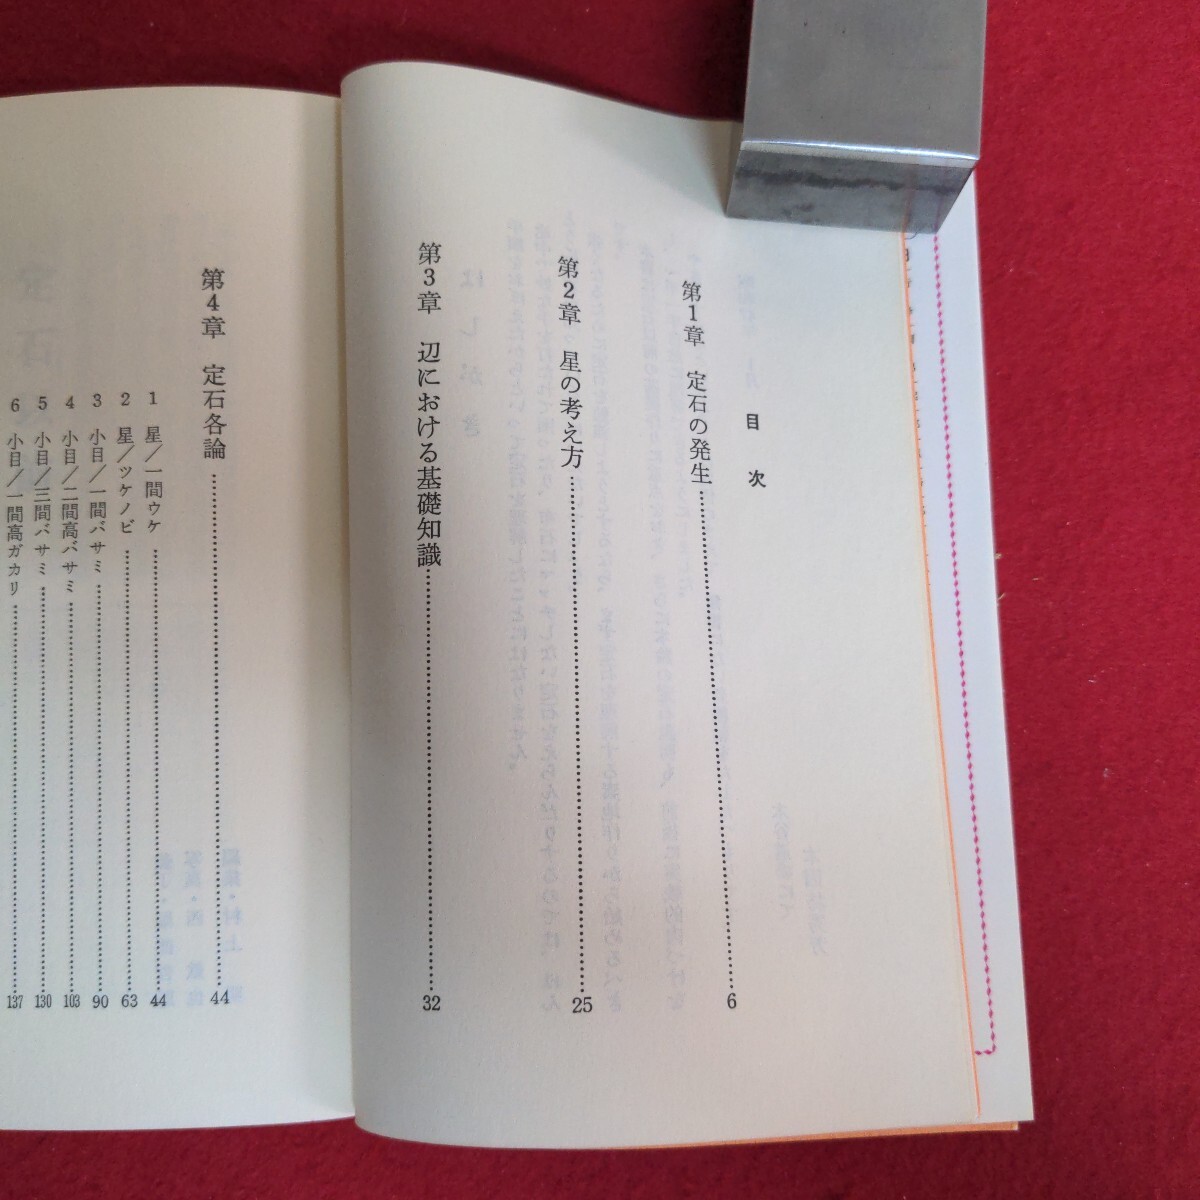 目次
第1章 定石の発生……6
第2章 星の考え方……25
第3章 辺における基礎知識……32
第4章 定石各論……44
1 星／一間ウケ……44
2 星／ツケノビ……63
3 小目／一間バサミ……90
4 小目／二間高バサミ……103
5 小目／三間バサミ……130
6 小目／一間高ガカリ……137